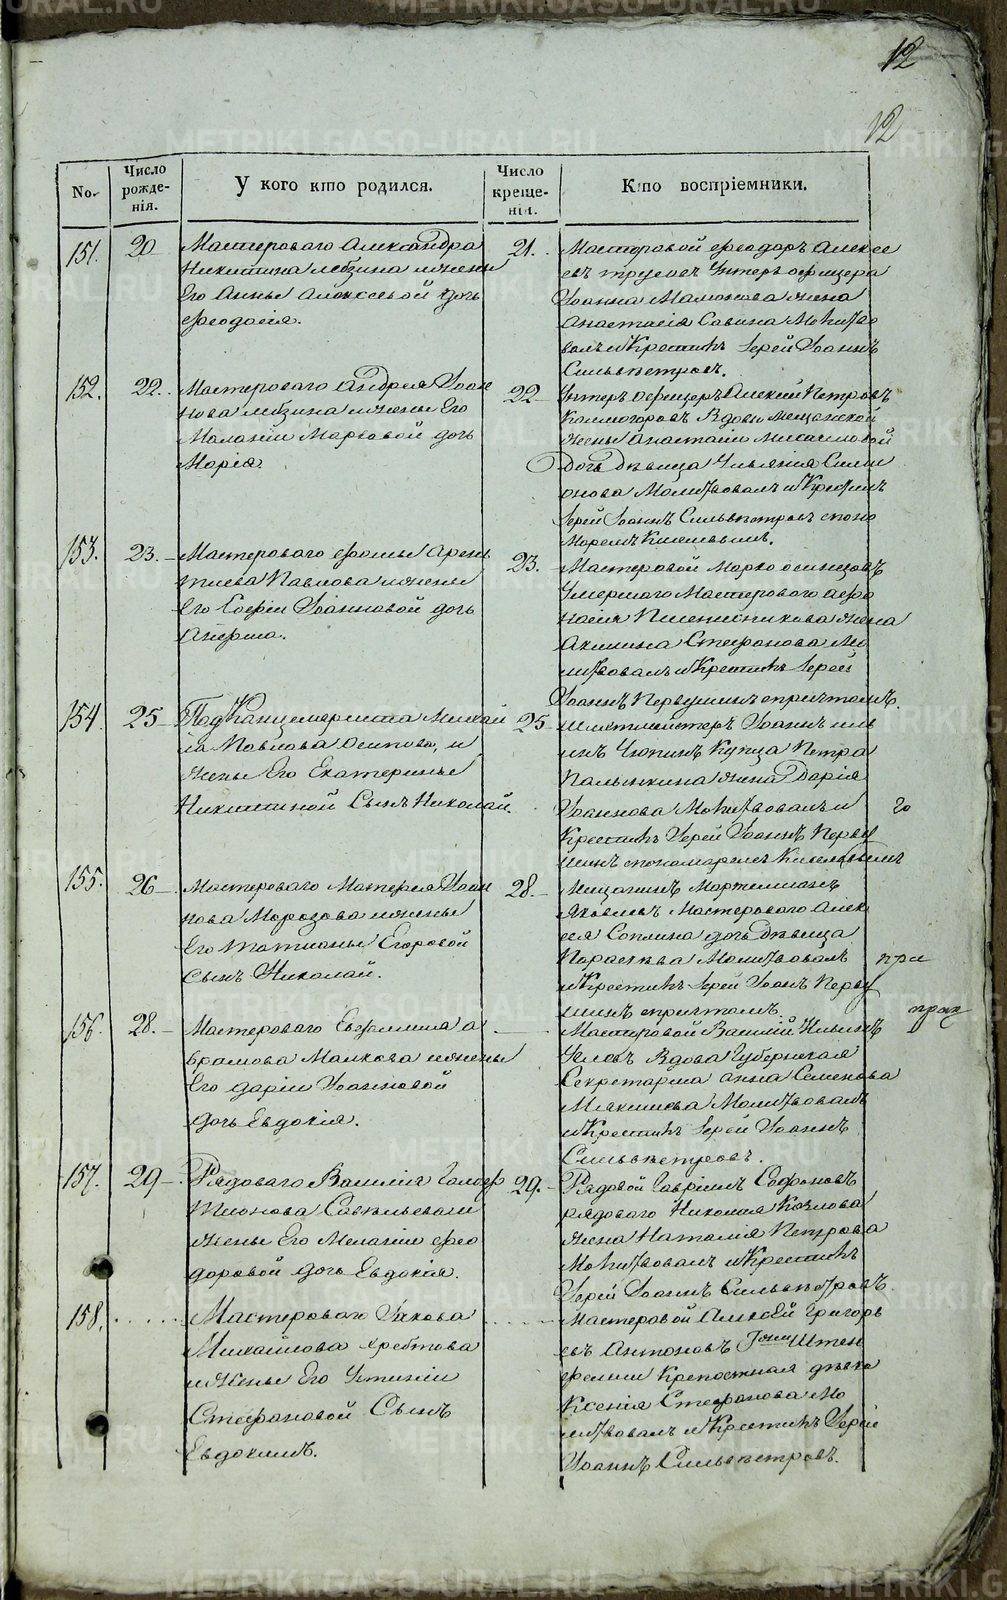 12
12
No.
Число рожде-нія.
У кого кто родился.
Число креще-нія.
Кто воспріемники.
151.
20
Мастероваго Александра
Никитина и жены
Его Анны Алексеевой дочь
Феодосія.
21.
Мастеровой Феодоръ Алексе
евъ Унтеръ офицера
Іоанна Мамонова жена
Анастасія Савина Молитво
валъ и Крестилъ Іерей Іоаннъ
Сильвестровъ.
152.
22.
Мастероваго Андрея Іоан
нова и жены Его
Маланіи Марковой дочь
Марія.
22
Унтеръ офицеръ Алексей Петровъ
Колмогоровъ Вдовы Мещанской
жены Анастасіи Михайловой
Дочь Девица Ульянія Сими
онова Молитвовалъ и Крестилъ
Іерей Іоаннъ Сильвестровъ споно
маремъ Киселевымъ.
153.
23.
Мастероваго Фомы Арень
тиева Павлова и жены
Его Софіи Іоанновой дочь
Анфиса.
23.
Мастеровой Марко Осинцовъ
Умершаго Мастероваго Афо
насія Пшеничникова жена
Акилина Стефанова Мо
литвовалъ и Крестилъ Іерей
Іоаннъ Первушинъ спричтомъ.
154.
25
Под Канцеляриста Михаи
ла Павлова Осипова, и
жены Его Екатерины
Никитиной Сынъ Николай.
25
Іоаннъ Иль
инъ Чюпинъ Купца Петра
Палынкина жена Дарія
Іоаннова Молитвовалъ и
Крестилъ Іерей Іоаннъ Перву
шинъ спономаремъ Киселевымъ
155.
26
Мастероваго Матфея Іоан
нова Морозова и жены
Его Татианы Егоровой
Сынъ Николай.
28
Мещанинъ Мартиміанъ
Яковлевъ Мастероваго Алек
сея Соплина дочь Девица
Параскева Молитвовалъ
и Крестилъ Іерей Іоанъ Перву
шинъ спричтомъ.
156.
28.
Мастероваго Евфимия А
брамова Малкова и жены
Его Даріи Іоанновой
дочь Евдокія.
Мастеровой Василій Ильинъ
Вдова Губернская
Секретарша Анна Семенова
Мякишева Молитвовалъ
и Крестилъ Іерей Іоаннъ
Сильвестровъ.
157.
29
Рядоваго Василія Галаф
тионова Савельева и
жены Его Меланіи Фео
доровой дочь Евдокія.
29.
Рядовой Гавріилъ Софоновъ
рядоваго Николая Козлова
жена Наталія Петрова
Молитвовалъ и Крестилъ
Іерей Іоаннъ Сильвестровъ.
158.
Мастероваго Якова
Михайлова Хребтова
и жены Его Устиніи
Стефановой Сынъ
Евдокимъ.
Мастеровой Алексей Григорь
евъ Антоновъ Гжи Штен
Крепостная девка
Ксенія Стефанова Мо
литвовалъ и Крестилъ Іерей
Іоаннъ Сильвестровъ.
METRIKI.GASO-URAL.RU